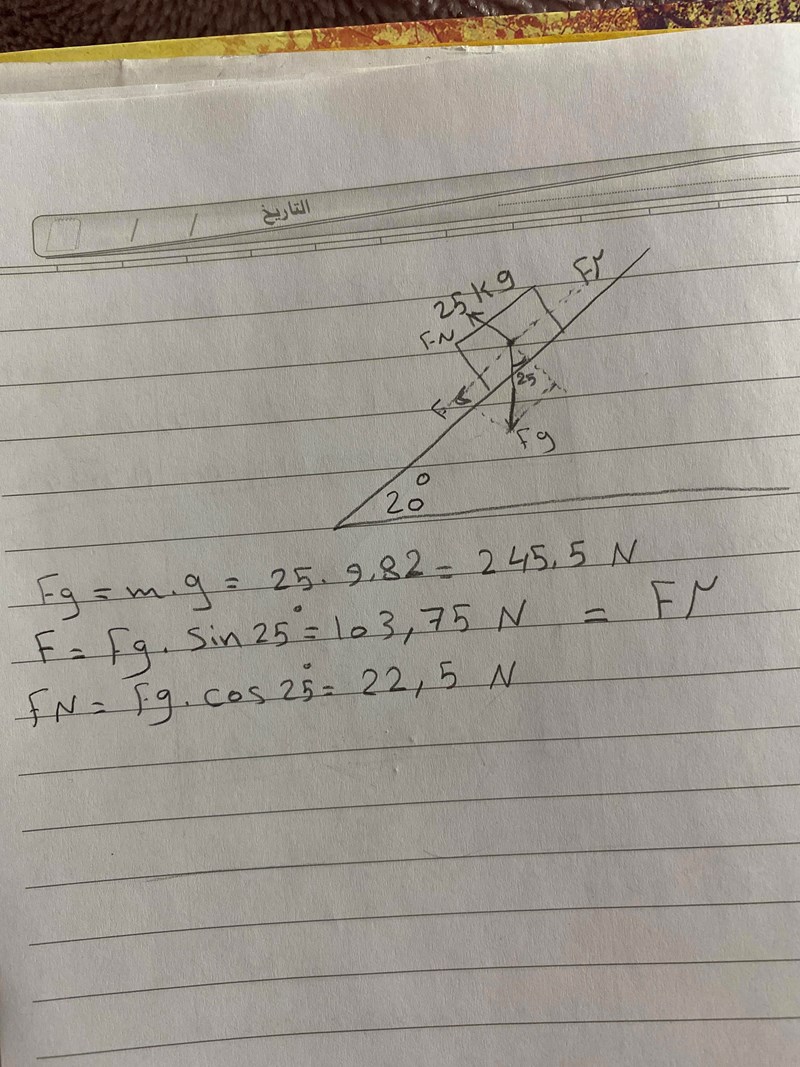 التاريخ
/ /
25 Kg
Fμ
FN
F
25
Fg
20°
Fg = m.g = 25. 9,82 = 245,5 N
F = Fg. Sin 25° = 103,75 N = Fμ
FN = Fg. cos 25° = 22,5 N